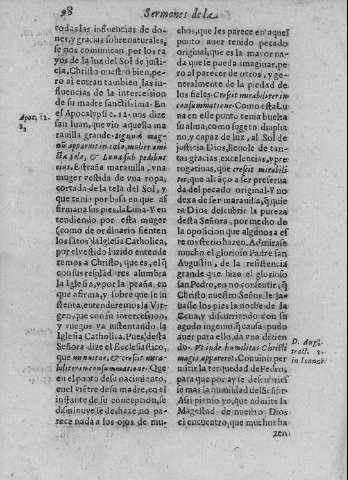 98
Sermones de la
todas las influencias de do-
nes, y gracias sobrenaturales,
se nos comunican por los ra
yos de la luz del Sol de justi-
cia, Christo nuestro bien, pe-
ro ai entran tambien, las in-
fluencias de la intercession
de su madre sanctissima. En
el Apocalypsi c. 12. nos dize
san Iuan, que vio aquella ma
rauilla grande: signum mag-
nũ apparuit in cælo, mulier ami
cta sole, & Luna sub pedibus
eius. Estraña marauilla, vna
muger vestida de vna ropa,
cortada de la tela del Sol, y
que tenia por basa en que a-
firmaua sus pies, la Luna. Y en
tendiendo por esta muger
(como de ordinario sienten
los sãtos) la Iglesia Catholica,
por el vestido luzido entende
remos a Christo, que es, el q̃
con sus resplãdores alumbra
la Iglesia, y por la peaña, en
que afirma, y sobre que se su
stenta, entenderemos la Vir-
gen, que con su intercession,
y ruegos va sustentando la
Iglesia Catholica. Pues, desta
Señora dize el Ecclesiastico,
que
Que
en el punto de su nacimiento,
en el vietre de su madre, en el
instante de su concepcion, se
diminuye se deshaze no pa-
rece nada a los ojos de mu-
Apoc. 12.
chos, que les parece en aquel
punto auer tenido pecado
original, que es la mayor na-
da que se pueda imaginar, pe
ro al parecer de otros, y ge-
neralmente de la piedad de
los fieles, Crescit mirabiliter in
consummatione. Como esta Lu
na en este punto tenia buelta
su alma, como sugeto dispues-
to, y capaz de luz, al Sol de
justicia Dios, llenole de tan-
tas gracias excelencias, y pre
rogatiuas, que crescit mirabili-
ter, que alcãço a ser preserua
da del pecado original. Y no
dexa de ser marauilla, q̃ quie
ra Dios descubrir la pureza
desta Señora, por medio de
la oposicion que algunos a es
te mysterio hazen. Admirase
mucho el glorioso Padre san
Augustin, de la resistencia
grande que hizo el glorioso
san Pedro, en no consentir, q̃
Christo nuestro Señor le la-
uasse los pies la noche de la
Cena, y discurriendo con su
agudo ingenio, q̃ causa pudo
auer para ello, da vna diziẽn
do. Vt inde humilitas Christi
magis appareret. Conuino per
mitir la terquedad de Pedro,
para que por ay se descubries
se mas la humildad del Señor.
Assi pienso yo, que admite la
Magestad de nuestro Dios
el encuentro, que muchos ha
zen
D. Augu.
tract.
in Ioann.